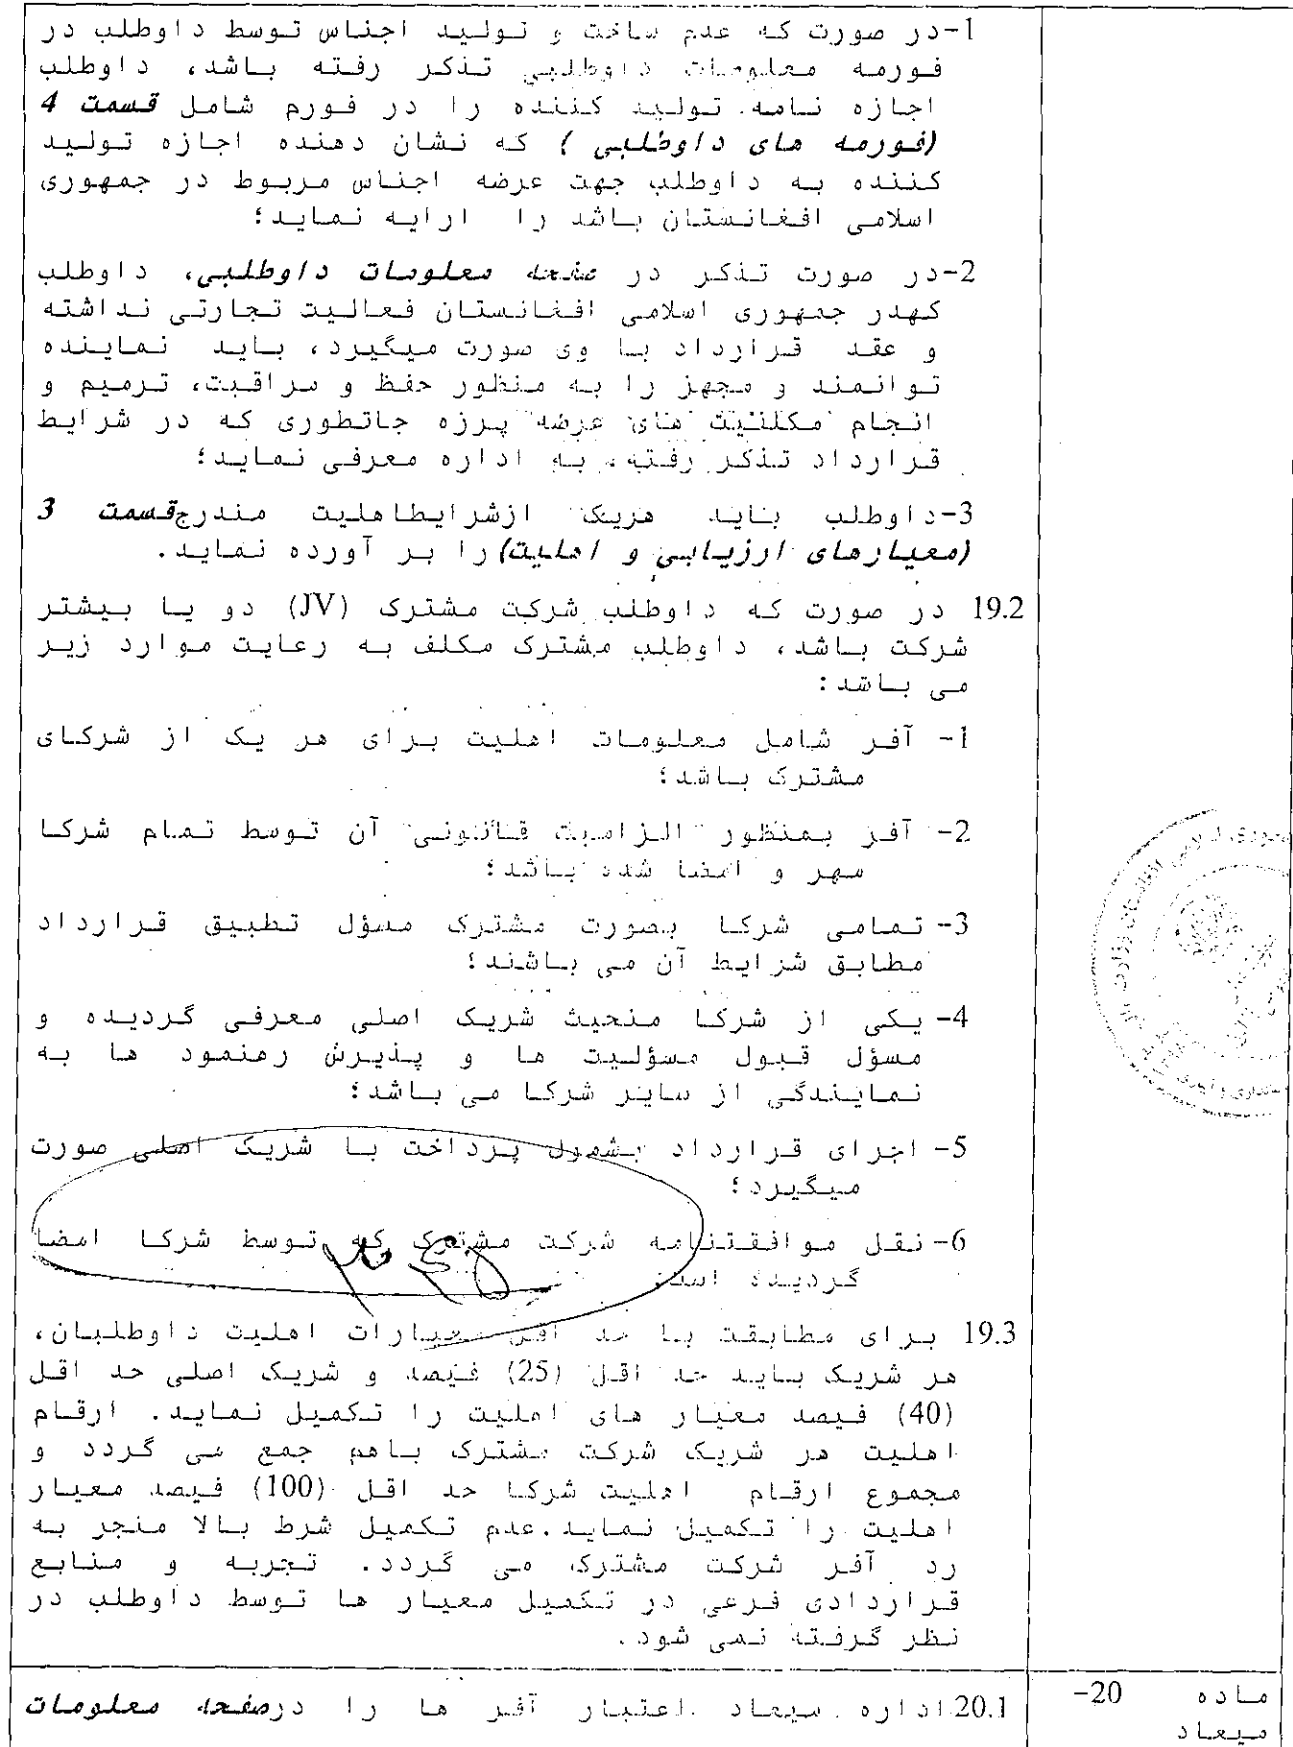 1-در صورت که عدم ساخت و تولید اجناس توسط داوطلب در
فورمه معلومات داوطلبی تذکر رفته باشد، داوطلب
اجازه نامه تولید کننده را در فورم شامل قسمت 4
(فورمه های داوطلبی ) که نشان دهنده اجازه تولید
کننده به داوطلب جهت عرضه اجناس مربوط در جمهوری
اسلامی افغانستان باشد را ارایه نماید؛
2-در صورت تذکر در صفحه معلومات داوطلبی، داوطلب
کهدر جمهوری اسلامی افغانستان فعالیت تجارتی نداشته
و عقد قرارداد با وی صورت میگیرد، باید نماینده
توانمند و مجهز را به منظور حفظ و مراقبت، ترمیم و
انجام مکلفیت های عرضه پرزه جاتطوری که در شرایط
قرارداد تذکر رفته، به اداره معرفی نماید؛
3-داوطلب باید هریک ازشرایطاهلیت مندرجقسمت 3
(معیارهای ارزیابی و اهلیت)را بر آورده نماید.
19.2 در صورت که داوطلب شرکت مشترک (JV) دو یا بیشتر
شرکت باشد، داوطلب مشترک مکلف به رعایت موارد زیر
می باشد:
1- آفر شامل معلومات اهلیت برای هر یک از شرکای
مشترک باشد؛
2- آفر بمنظور الزامیت قانونی آن توسط تمام شرکا
مهر و امضا شده باشد؛
3- تمامی شرکا بصورت مشترک مسؤل تطبیق قرارداد
مطابق شرایط آن می باشند؛
4- یکی از شرکا منحیث شریک اصلی معرفی گردیده و
مسؤل قبول مسؤلیت ها و پذیرش رهنمود ها به
نمایندگی از سایر شرکا می باشد؛
5- اجرای قرارداد بشمول پرداخت با شریک اصلی صورت
میگیرد؛
6- نقل موافقتنامه شرکت مشترک که توسط شرکا امضا
گردیده است
19.3 برای مطابقت با حد اقل معیارات اهلیت داوطلبان،
هر شریک باید حد اقل (25) فیصد و شریک اصلی حد اقل
(40) فیصد معیار های اهلیت را تکمیل نماید. ارقام
اهلیت هر شریک شرکت مشترک باهم جمع می گردد و
مجموع ارقام اهلیت شرکا حد اقل (100) فیصد معیار
اهلیت را تکمیل نماید.عدم تکمیل شرط بالا منجر به
رد آفر شرکت مشترک می گردد. تجربه و منابع
قراردادی فرعی در تکمیل معیار ها توسط داوطلب در
نظر گرفته نمی شود.
ماده 20-
میعاد
20.1 اداره میعاد اعتبار آفر ها را درصفحه معلومات